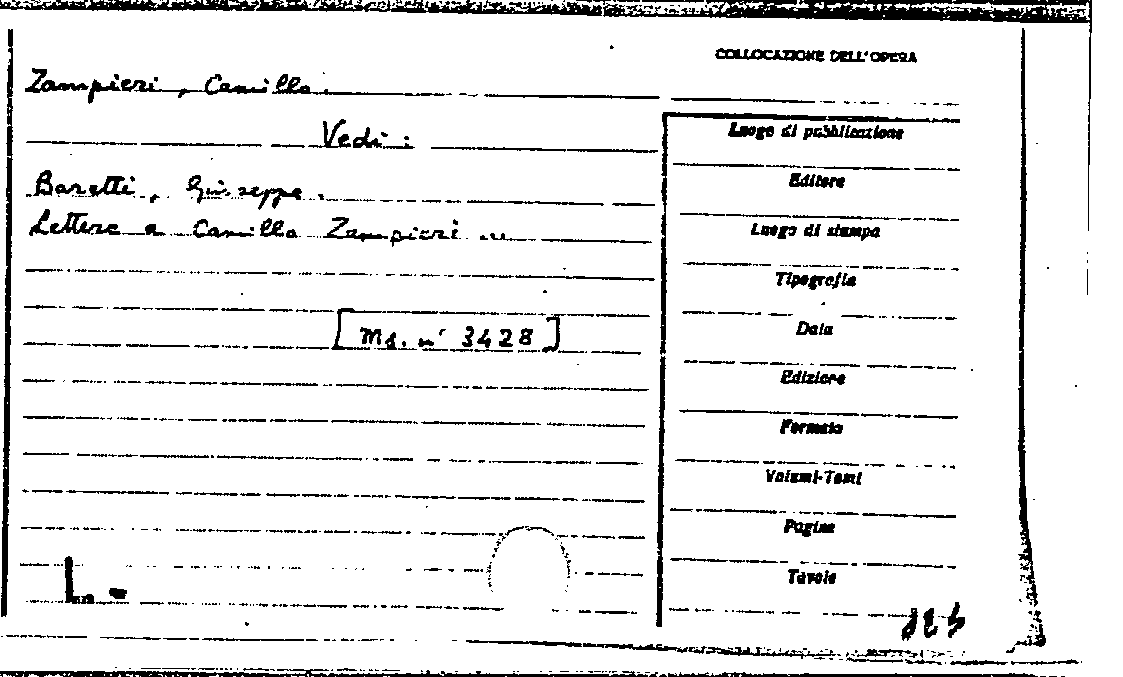 COLLOCAZIONE DELL'OPERA
Zampieri, Camillo.
Vedi:
Baretti, Giuseppe.
Lettere a Camillo Zampieri ...
[Ms. n° 3428]
Luogo di pubblicazione
Editore
Luogo di stampa
Tipografia
Data
Edizione
Formato
Volumi-Tomi
Pagine
Tavole